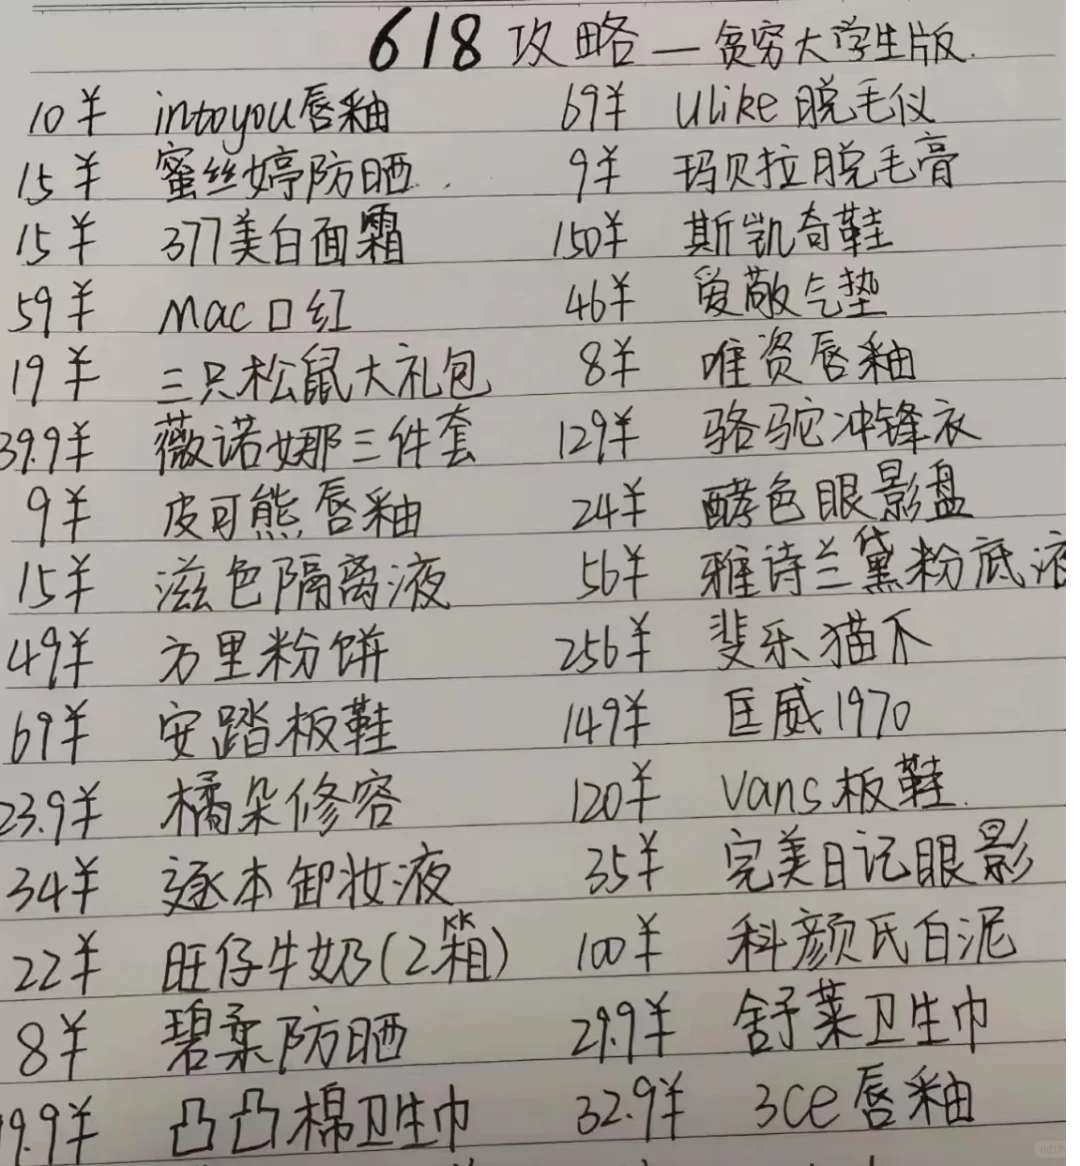 618 攻略—贫穷大学生版.
10¥ intoyou唇釉 69¥ Ulike 脱毛仪
15¥ 蜜丝婷防晒. 9¥ 玛贝拉脱毛膏
15¥ 377美白面霜 150¥ 斯凯奇鞋
59¥ Mac口红 46¥ 爱敬气垫
19¥ 三只松鼠大礼包 8¥ 唯资唇釉
39.9¥ 薇诺娜三件套 129¥ 骆驼冲锋衣
9¥ 皮可熊唇釉 24¥ 酵色眼影盘
15¥ 滋色隔离液 56¥ 雅诗兰黛粉底液
49¥ 方里粉饼 256¥ 斐乐猫爪
69¥ 安踏板鞋 149¥ 匡威1970
23.9¥ 橘朵修容 120¥ Vans板鞋.
34¥ 逐本卸妆液 35¥ 完美日记眼影
22¥ 旺仔牛奶(2箱) 100¥ 科颜氏白泥
8¥ 碧柔防晒 29.9¥ 舒莱卫生巾
9.9¥ 凸凸棉卫生巾 32.9¥ 3ce唇釉